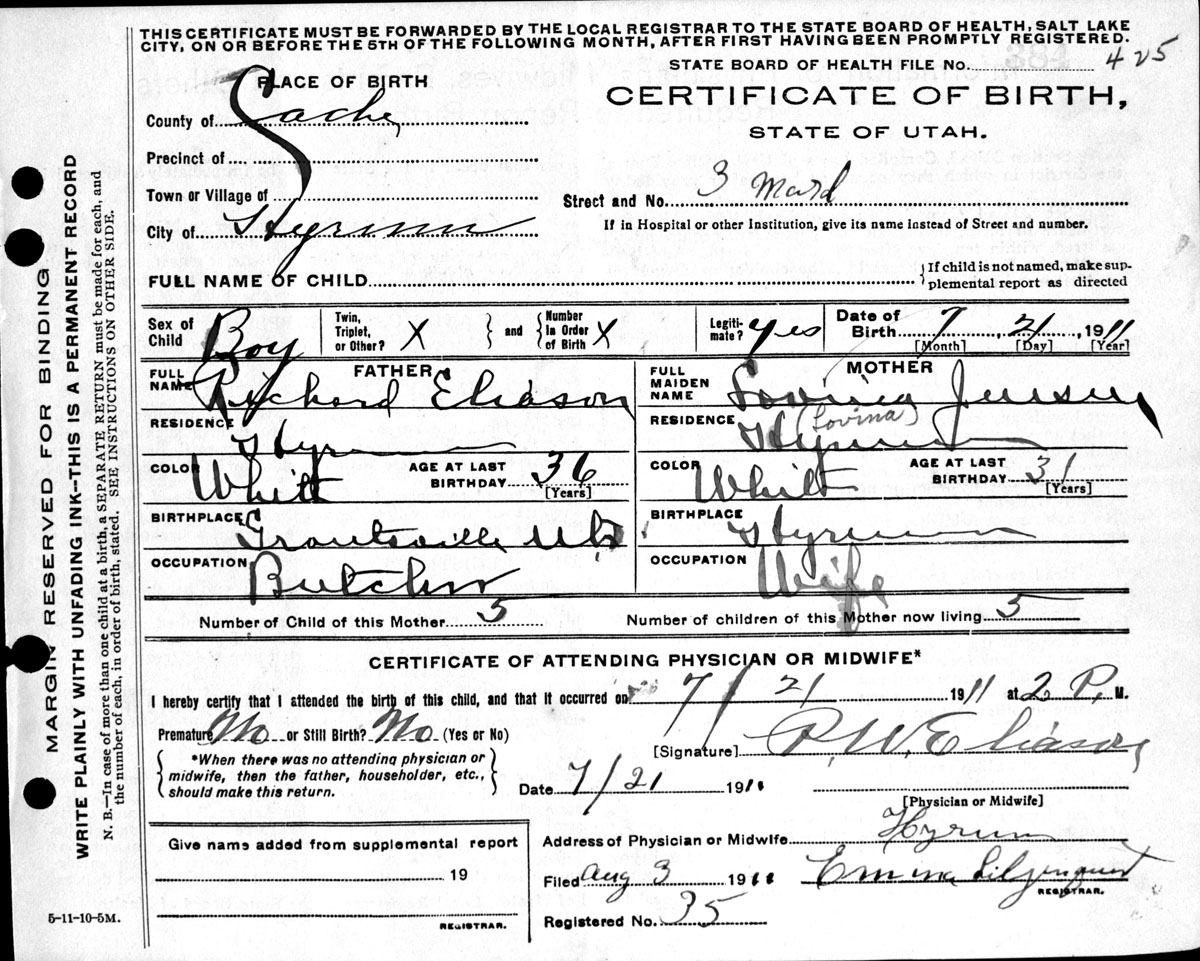 THIS CERTIFICATE MUST BE FORWARDED BY THE LOCAL REGISTRAR TO THE STATE BOARD OF HEALTH, SALT LAKE
CITY, ON OR BEFORE THE 5TH OF THE FOLLOWING MONTH, AFTER FIRST HAVING BEEN PROMPTLY REGISTERED.
STATE BOARD OF HEALTH FILE No. 425
PLACE OF BIRTH
CERTIFICATE OF BIRTH,
STATE OF UTAH.
County of Cache
Precinct of
Town or Village of
Street and No. 3 Ward
City of Hyrum
If in Hospital or other Institution, give its name instead of Street and number.
FULL NAME OF CHILD
If child is not named, make sup-
plemental report as directed
Sex of Child Boy
Twin, Triplet, or Other? X and Number In Order of Birth X
Legiti-mate? Yes
Date of Birth 7, 21, 1911
[Month] [Day] [Year]
FATHER
FULL NAME Richard Eliason
RESIDENCE Hyrum
COLOR White
AGE AT LAST BIRTHDAY 36
[Years]
BIRTHPLACE Grantsville Utah
OCCUPATION Butcher
MOTHER
FULL MAIDEN NAME Lovina Jensen
(Lovina)
RESIDENCE Hyrum
COLOR White
AGE AT LAST BIRTHDAY 31
[Years]
BIRTHPLACE Hyrum
OCCUPATION Wife
Number of Child of this Mother 5
Number of children of this Mother now living 5
CERTIFICATE OF ATTENDING PHYSICIAN OR MIDWIFE*
I hereby certify that I attended the birth of this child, and that it occurred on 7/21 1911 at 2 P. M.
Premature No or Still Birth? No (Yes or No)
[Signature] P. W. Eliason
*When there was no attending physician or
midwife, then the father, householder, etc.,
should make this return.
Date 7/21 1911
[Physician or Midwife]
Give name added from supplemental report
19
REGISTRAR.
Address of Physician or Midwife Hyrum
Filed Aug 3 1911 Emma Liljenquist
REGISTRAR.
Registered No. 35
5-11-10-5M.
MARGIN RESERVED FOR BINDING
WRITE PLAINLY WITH UNFADING INK--THIS IS A PERMANENT RECORD
N. B.--In case of more than one child at a birth, a SEPARATE RETURN must be made for each, and
the number of each, in order of birth, stated. SEE INSTRUCTIONS ON OTHER SIDE.